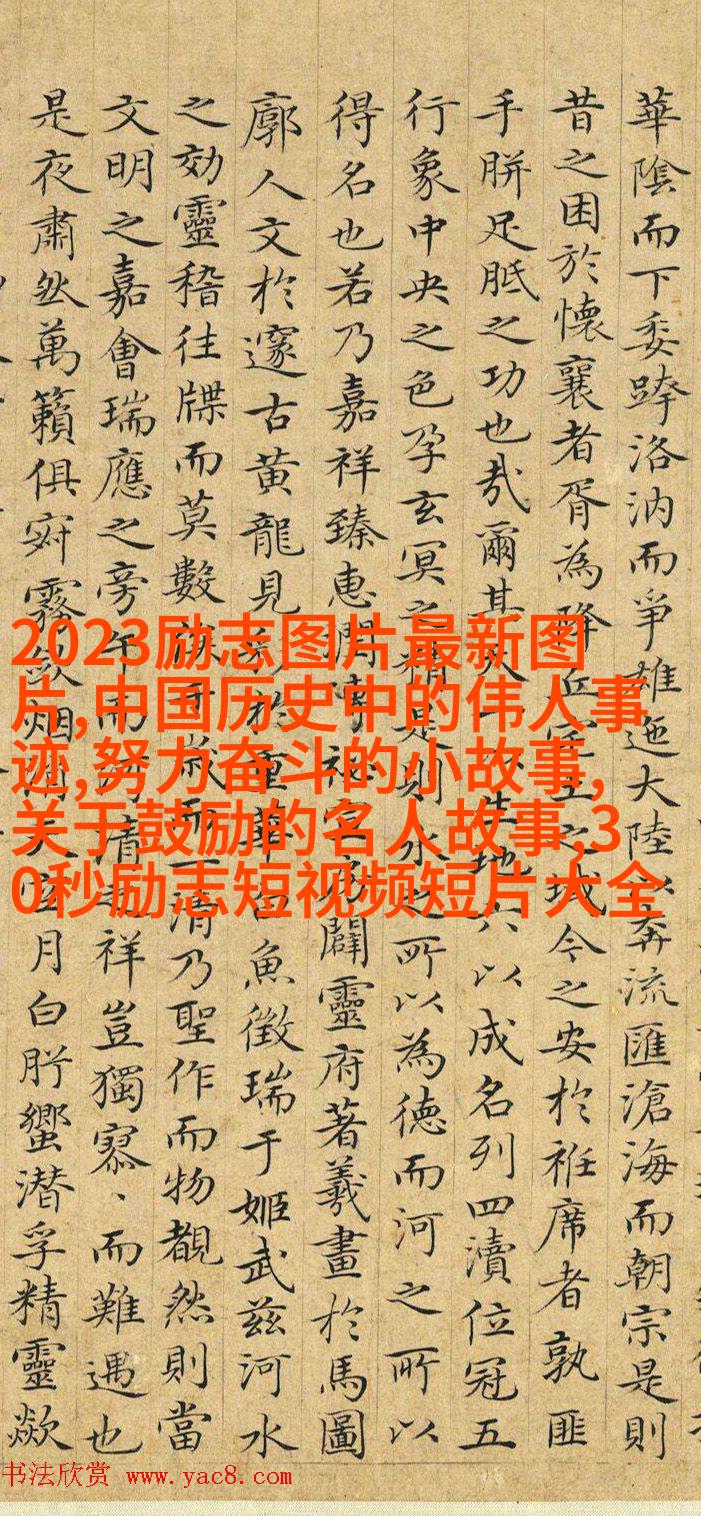 華陰而下委洛汭而爭雄迤大陸以奔流匯滄海而朝宗是則
昔之困於懷襄者胥為降丘宅土之域今之安於袵席者孰匪
手胼足胝之功也哉爾其天一所生地六以成名列四瀆位冠五
行象中央之色孕玄冥之精是則水之所以為德而河之所以
得名也若乃嘉祥臻惠闢靈府著羲畫於馬圖
廓人文於邃古黃龍見於重華白魚徵瑞于姬武茲河水
之効靈稽往牒而莫數千歲而一清乃聖作而物覩然則當
文明之嘉會瑞應之旁午而河清之祥豈獨寥、而難遇也
是夜肅然萬籟俱寂霧斂烟消天空月白肸蠁潜孚精靈歘
2023励志图片最新图
片,中国历史中的伟人事
迹,努力奋斗的小故事,
关于鼓励的名人故事,3
0秒励志短视频短片大全
书法欣赏 www.yac8.com